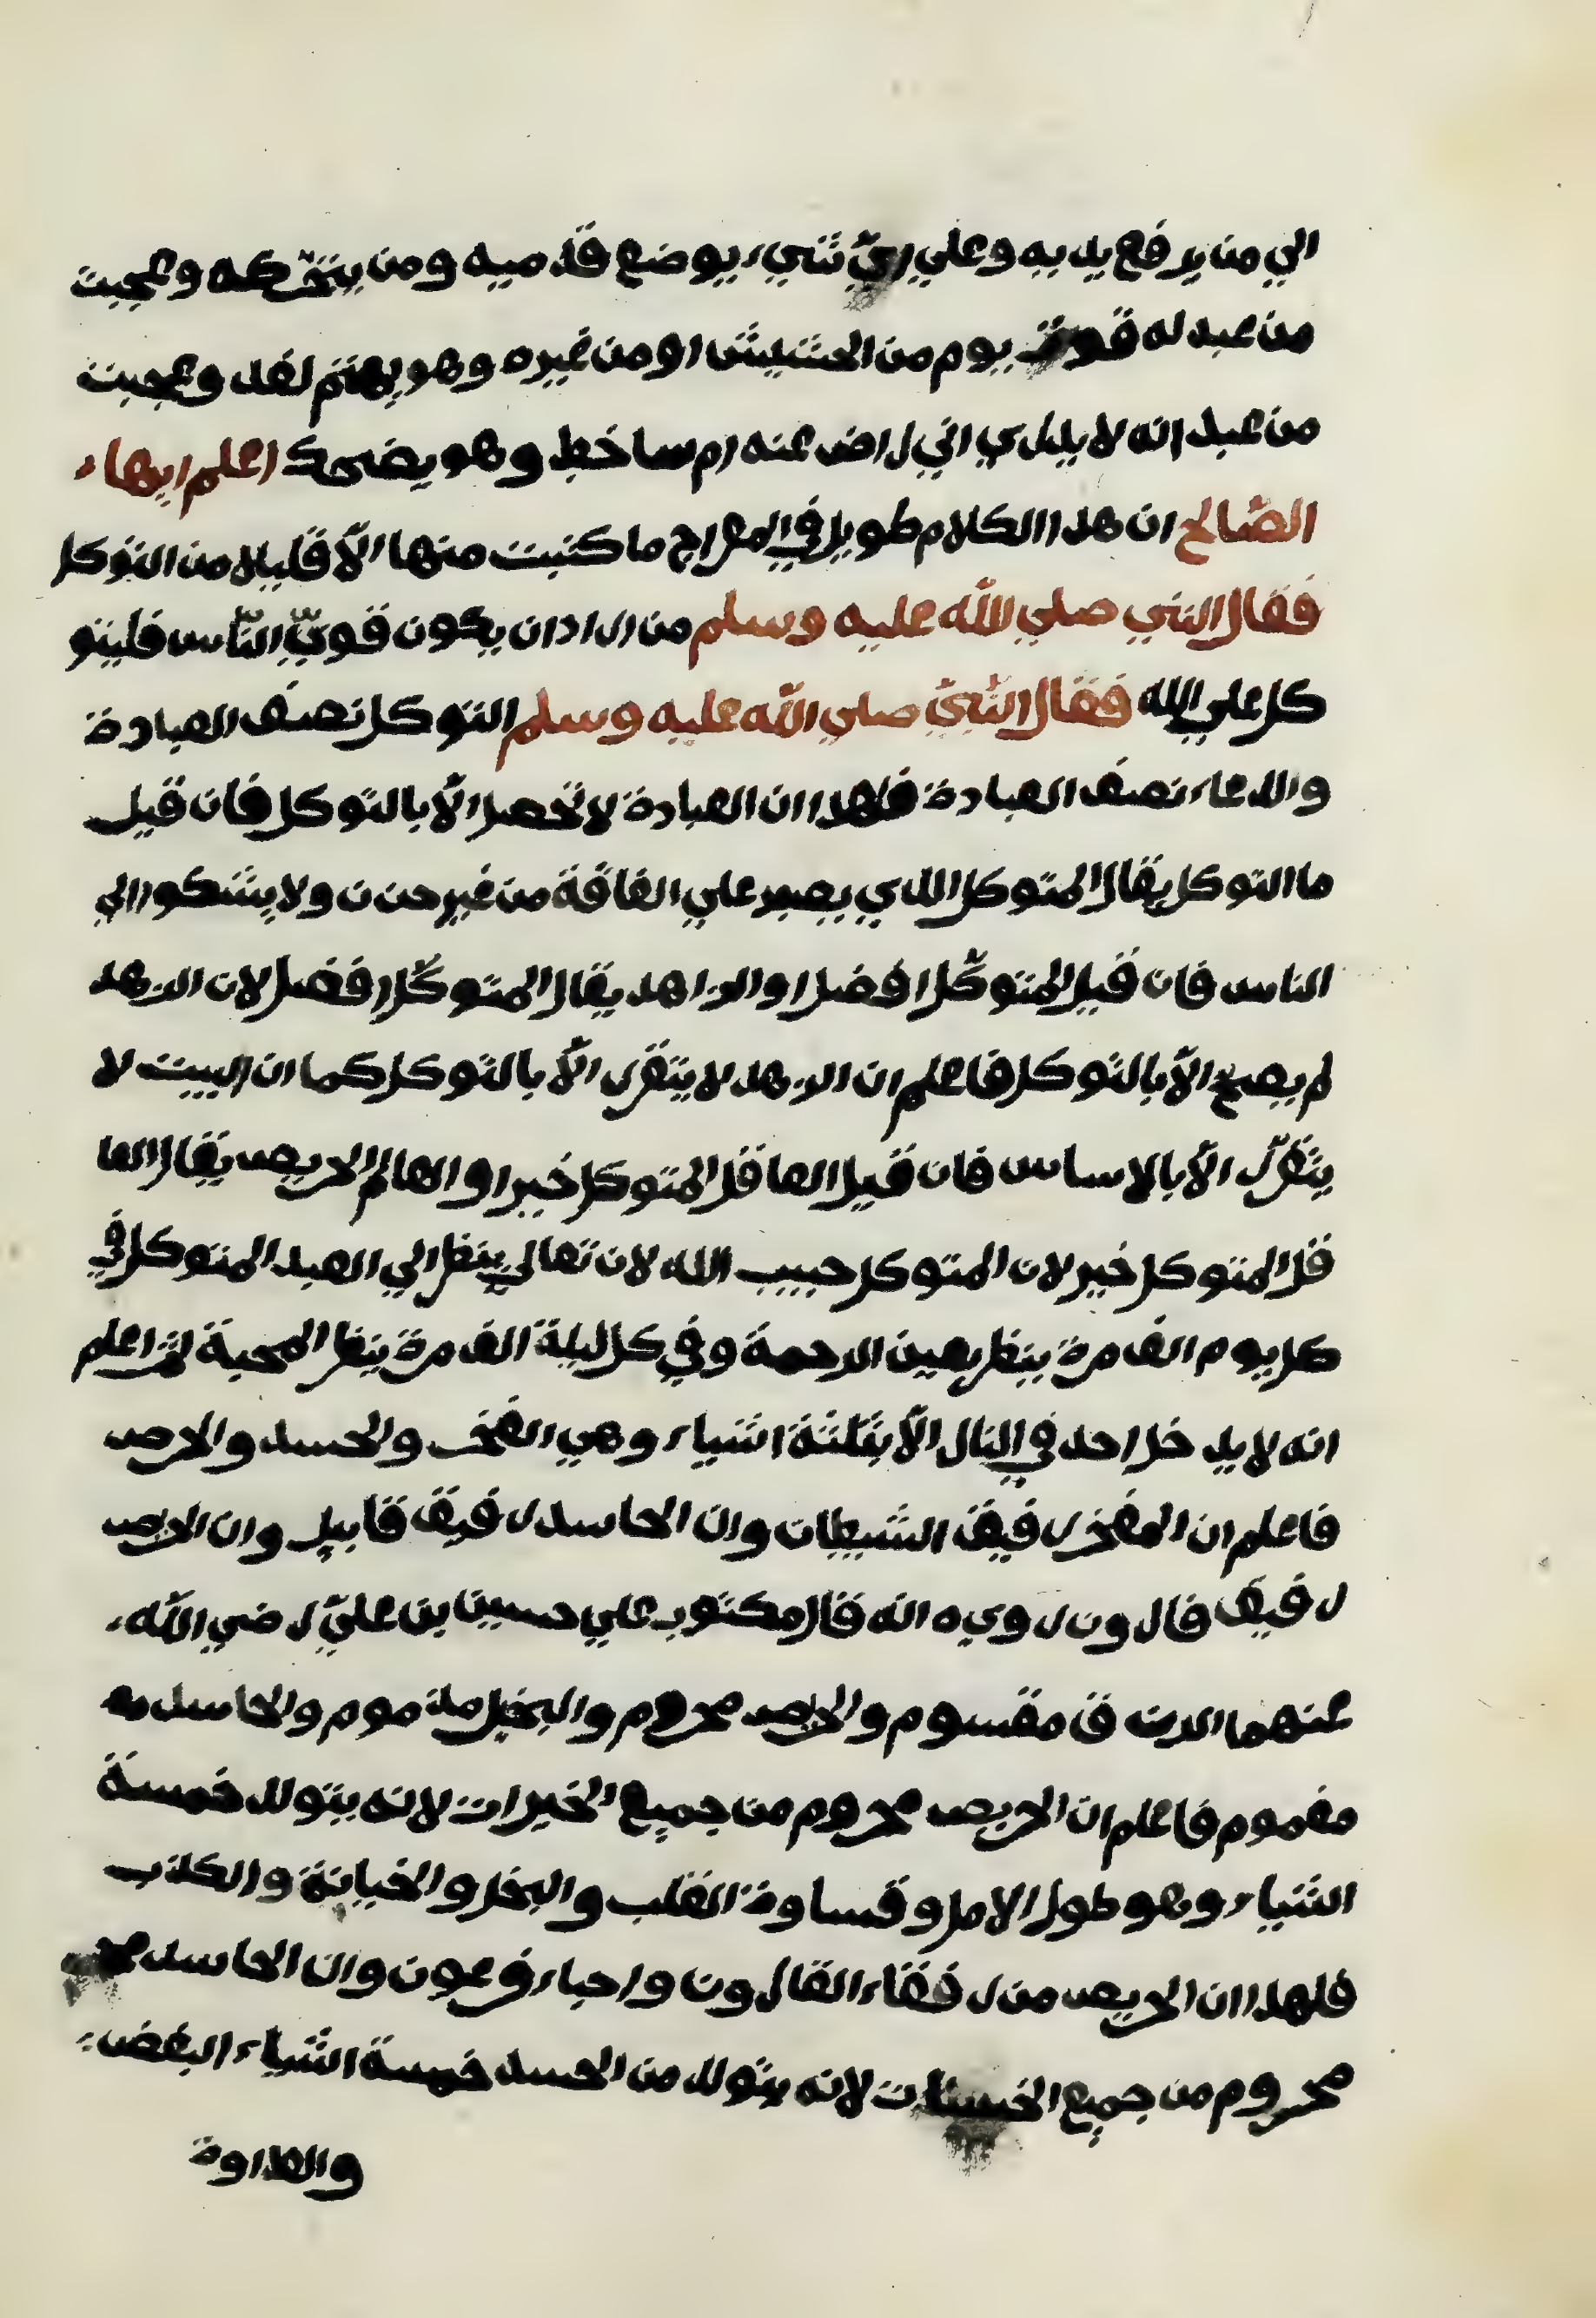 الي من يرفع يديه وعلي ايّ شيء يوضع قدميه ومن يتحّركه وعجبت
من عبد له قوة يوم من الحشيش او من غيره وهو يهتم لغد وعجبت
من عبد انه لا يدري اني راض عنه ام ساخط وهو يضحك اعلم ايها
الصّالح ان هذا الكلام طويل في المعراج ما كتبت منها الّا قليلا من التوكل
فقال النبي صلي اللّه عليه وسلم من اراد ان يكون قويّ النّاس فليتو
كل علي الله فقال النّبيّ صلي اللّه عليه وسلم التوكل نصف العبادة
والدعاء نصف العبادة فلهذا ان العبادة لا تحصل الّا بالتوكل فان قيل
ما التوكل يقال المتوكل الذي يصبر علي الفاقة من غير حزن ولا يشكوا الي
الناس فان قيل المتوكّل افضل او الزاهد يقال المتوكّل افضل لان الزهد
لم يصحّ الّا بالتوكل فاعلم ان الزهد لا يتقرر الّا بالتوكل كما ان البيت لا
يتقرّر الّا بالاساس فان قيل العاقل المتوكل خير او العالم الحريص يقال العا
قل المتوكل خير لان المتوكل حبيب الله لان تعالي ينظر الي العبد المتوكل في
كل يوم الف مرة ينظر بعين الرحمة وفي كل ليلة الف مرة ينظر المحبة ثم اعلم
انه لا يدخل احد في النار الّا بثلثة اشياء وهي الفخر والحسد والحرص
فاعلم ان المفخر رفيق الشيطان وان الحاسد رفيق قابيل وان الحريص
رفيق قارون روي انه قال مكتوب علي حسين بن عليّ رضي اللّه
عنهما الرزق مقسوم والحريص محروم والبخيل مذموم والحاسد مه
مغموم فاعلم ان الحريص محروم من جميع الخيرات لانه يتولد خمسة
اشياء وهو طول الامل وقساوة القلب والبخل والخيانة والكذب
فلهذا ان الحريص من رفقاء القارون واحباء فرعون وان الحاسد محـ
محروم من جميع الحسنات لانه يتولد من الحسد خمسة اشياء البغض
والعداوة